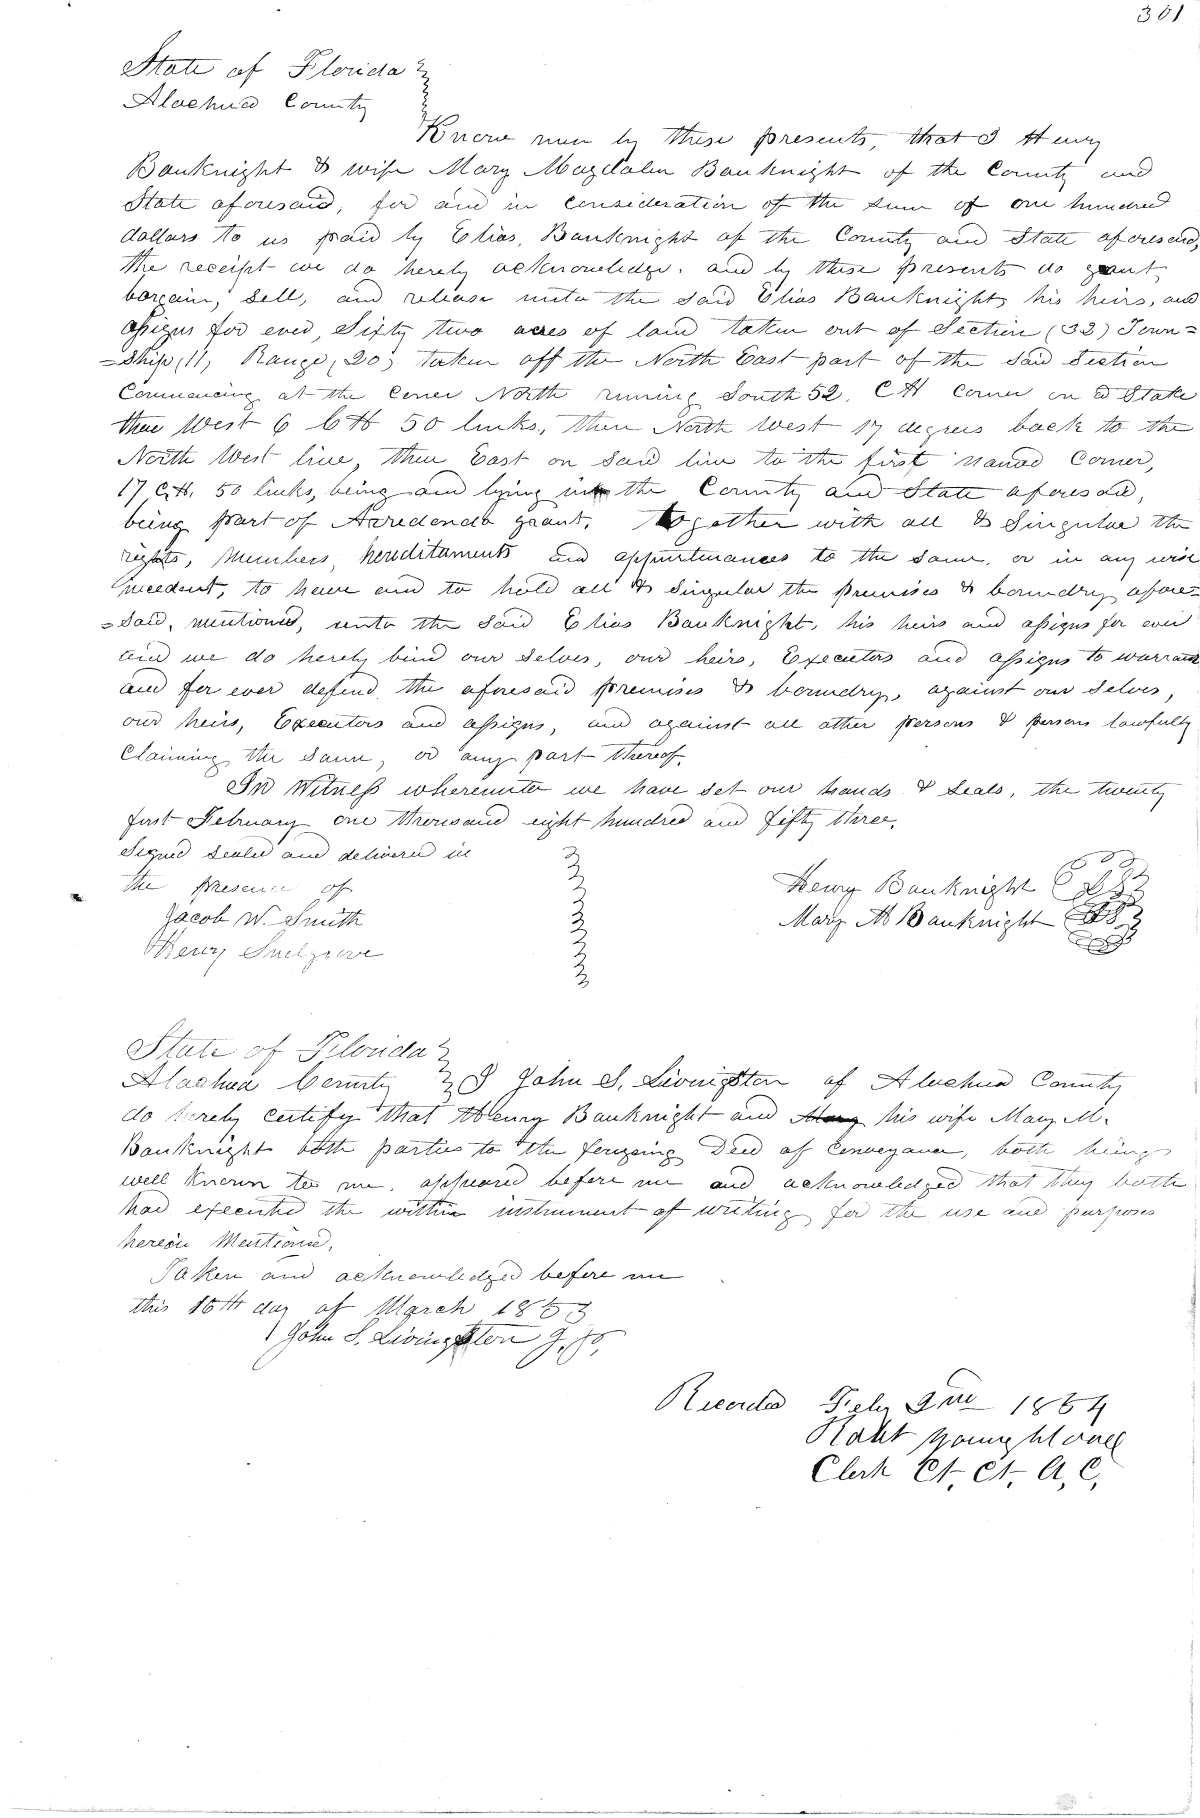 301
State of Florida
Alachua County
Know men by these presents, that I Henry
Bauknight & wife Mary Magdalen Bauknight of the County and
State aforesaid, for and in consideration of the sum of one hundred
dollars to us paid by Elias, Bauknight of the County and State aforesaid,
the receipt we do hereby acknowledge. and by these presents do grant,
bargain, sell, and release unto the said Elias Bauknight, his heirs, and
assigns for ever, Sixty two acres of land taken out of Section (32) Town=
=ship (11, Range (20) taken off the North East part of the said Section
Commencing at the Corner North running South 52. CH corner on a Stake
thence West 6 CH 50 links, then North West 17 degrees back to the
North West line, then East on said line to the first named Corner,
17 C,H. 50 links, being and lying in the County and State aforesaid,
being part of Arredondo grant. Together with all & Singular the
rights, members, hereditaments and appurtenances to the same, or in any wise
incedent, to have and to hold all & singular the premises & boundry afore=
=said, mentioned, unto the said Elias Bauknight, his heirs and assigns for ever
and we do hereby bind our selves, our heirs, Executors and assigns to warrant
and for ever defend the aforesaid premises & boundry, against our selves,
our heirs, Executors and assigns, and against all other persons & persons lawfully
Claiming the same, or any part thereof.
In Witness whereunto we have set our hands & seals, the twenty
first February one thousand eight hundred and fifty three.
Signed sealed and delivered in
the presence of
Jacob W. Smith
Henry Snelgrove
Henry Bauknight
Mary M Bauknight
State of Florida
Alachua County I John S. Livingston of Alachua County
do hereby certify that Henry Bauknight and Mary his wife Mary M.
Bauknight both parties to the forgoing Deed of Conveyance, both being
well known to me. appeared before me and acknowledged that they both
had executed the within instrument of writing for the use and purposes
herein Mentioned.
Taken and acknowledged before me
this 16th day of March 1853
John S. Livingston J. P.
Recorded Feby 2nd 1854
Robt Youngblood
Clerk Ct. Ct. A. C.